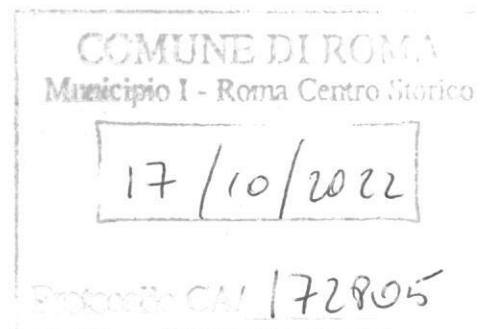 COMUNE DI ROMA
Municipio I - Roma Centro Storico
17/10/2022
Protocollo CA/ 172805